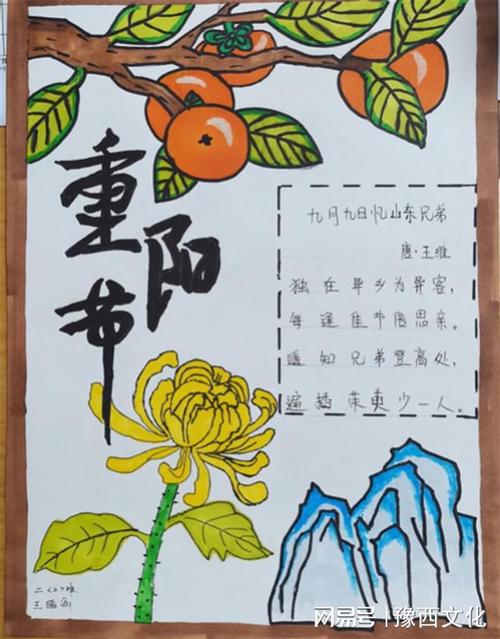 重阳节
九月九日忆山东兄弟
唐·王维
独在异乡为异客,
每逢佳节倍思亲。
遥知兄弟登高处,
遍插茱萸少一人。
二〈2〉班
王
网易号 | 豫西文化